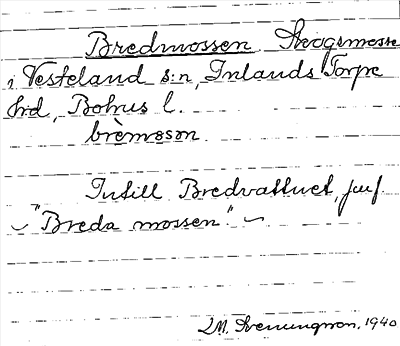 Bredmossen Skogsmosse
i Vesteland s:n, Inlands Torpe
hd, Bohus l.
brèmåsən
Intill Bredvattnet, jmf.
"Breda mossen"
1940